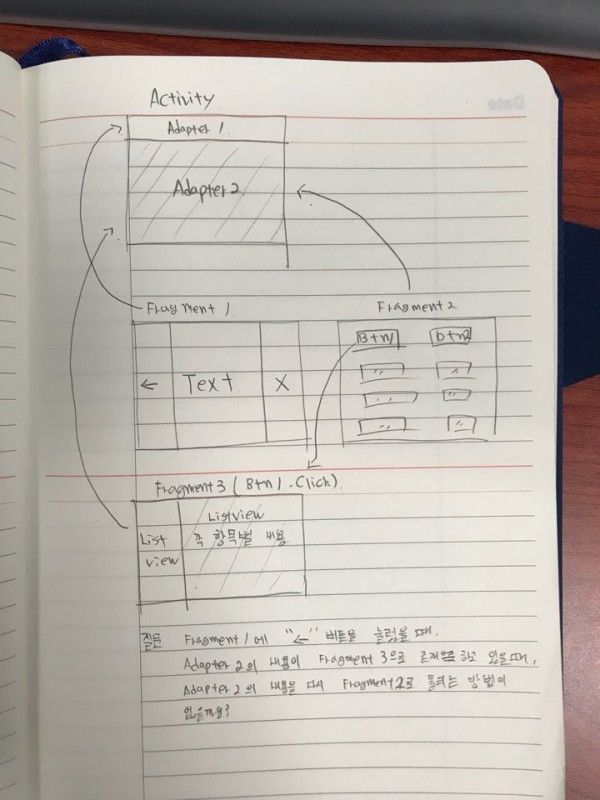 Date
Activity
Adapter 1
Adapter 2
Fragment 1
Fragment 2
Btn1 btn2
← Text X
Fragment 3 (Btn 1 - Click)
List view
Listview
각 항목별 내용
질문 Fragment 1 에 "←" 버튼을 눌렀을 때,
Adapter 2의 내용이 Fragment 3으로 존재 하고 있을때,
Adapter 2의 내용을 다시 Fragment 2로 돌리는 방법이
없을까요?